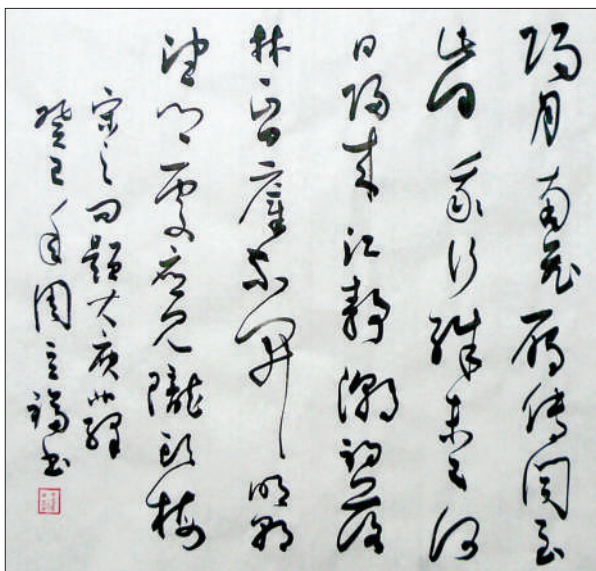 阳月南飞雁传闻至
此回我行殊未已何
日归来江静潮初落
林昏瘴不开明朝
望乡处应见陇头梅
宋之问题大庾北驿
癸巳年周立福书